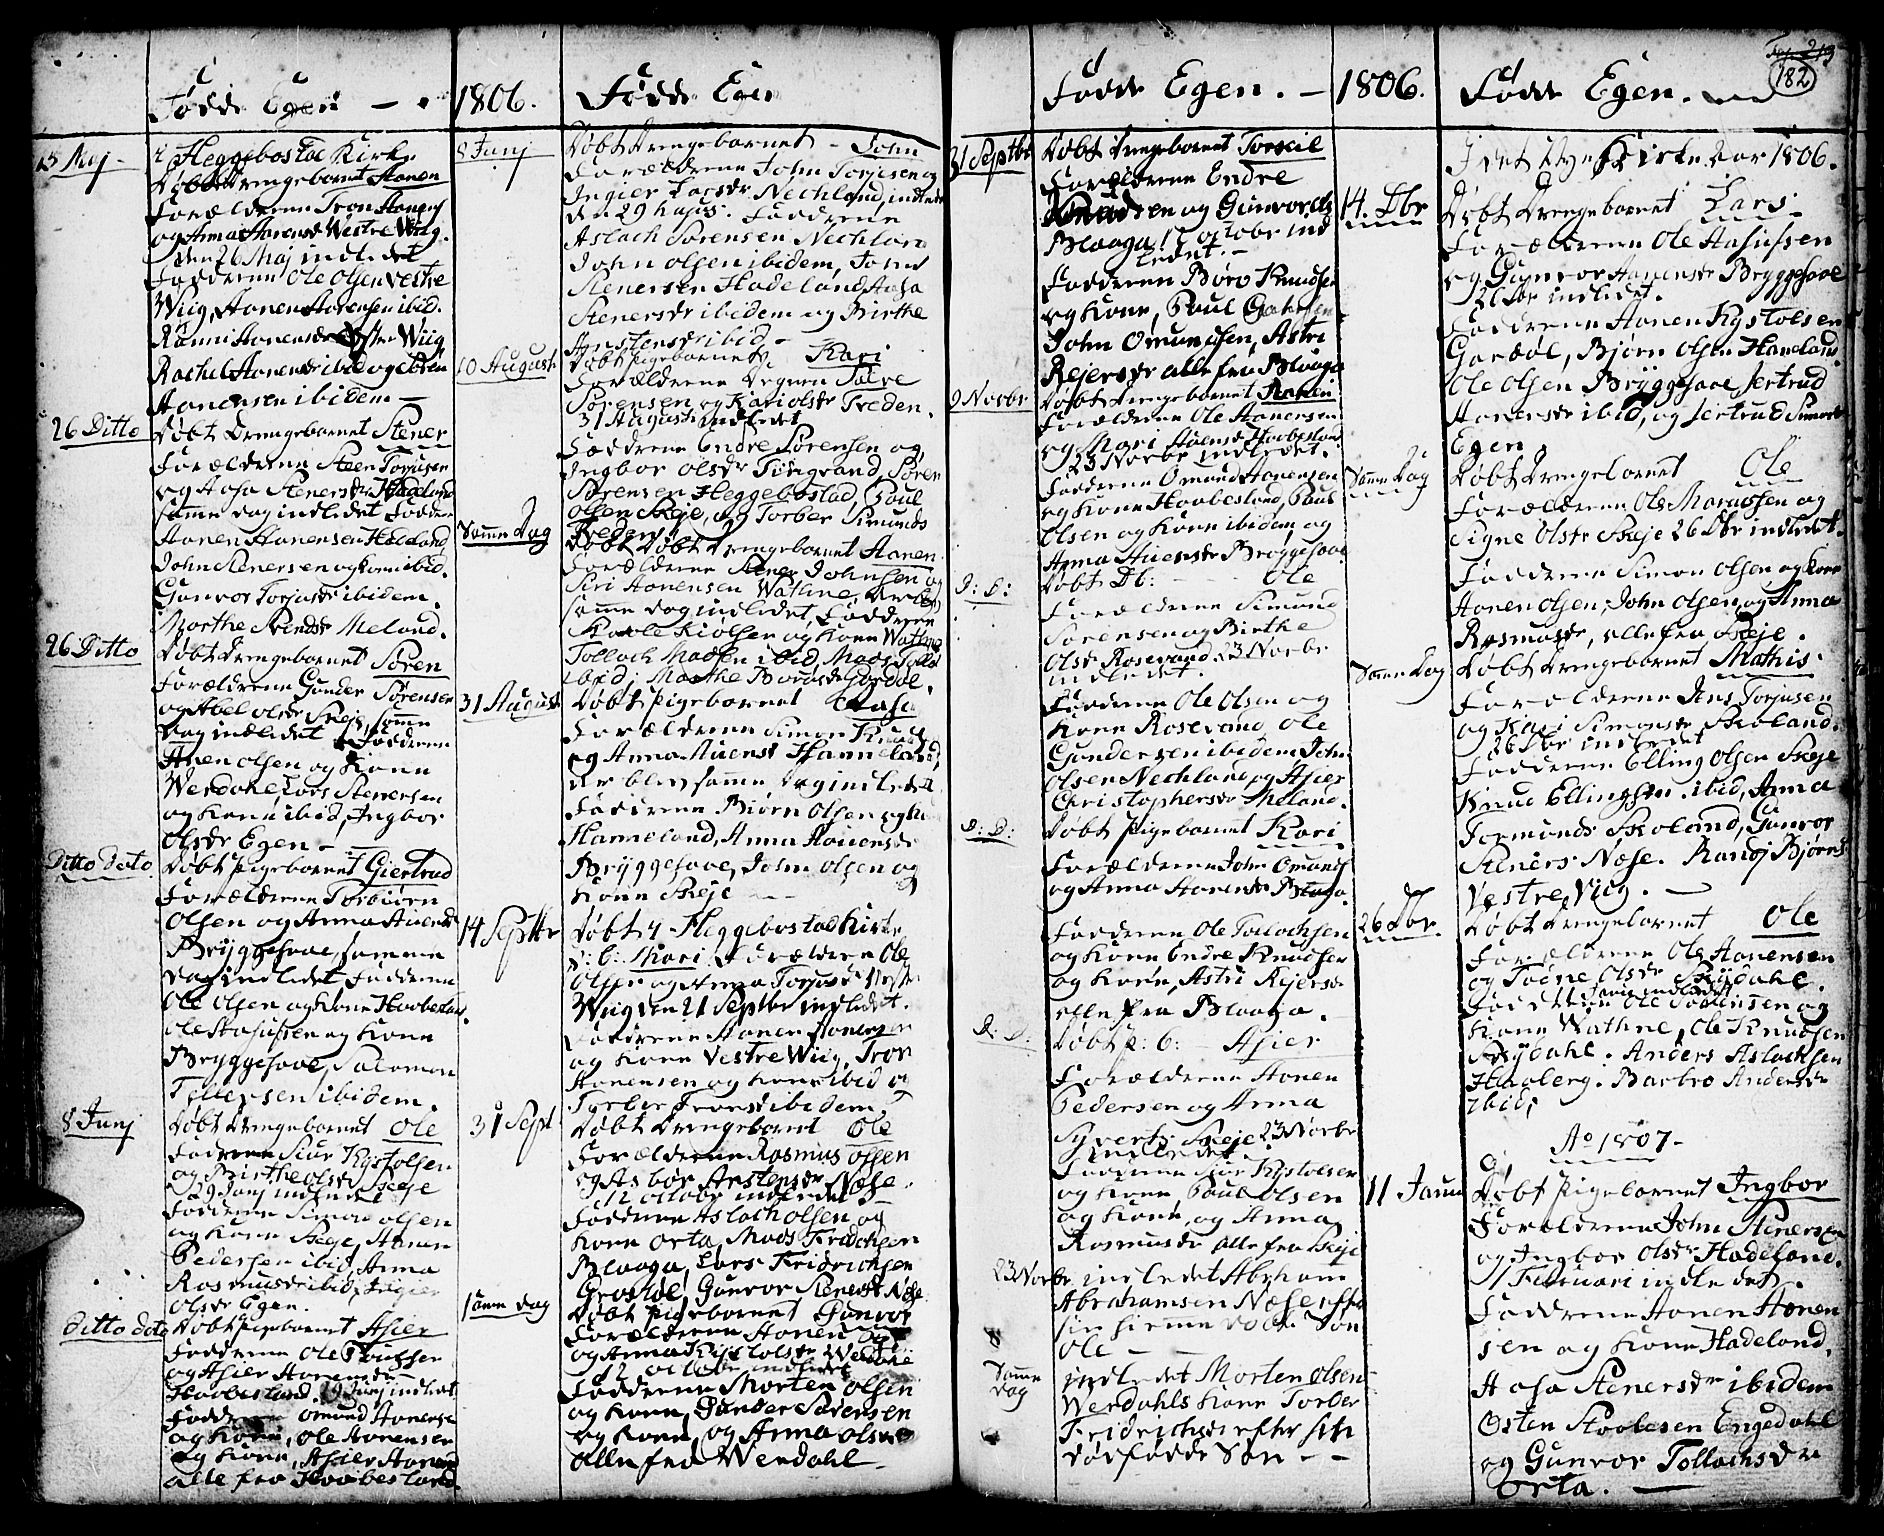 182
Fødde Egen
15 Maj
I Heggebostad Kirke
Døbt Drengebarnet Aanen
Forældrene Tron Aanens
og Anna Aanensdr Westre Wiig.
den 26 Maj indledet
Fadderne Ole Olsen Vestre
Wiig, Aanen Aanensen ibid.
Ranni Aanensdr Øster Wiig
Rachel Aanensdr ibid og Søren
Aanensen ibidem —
26 Ditto
Døbt Drengebarnet Stener
Forældrene Steen Torjusen
og Aasa Stenersdr Hadeland
samme dag indledet Fadder
Aanen Aanensen Hadeland
John Stenersen og Kone ibid.
Gunvor Torjusdr ibidem.
Marthe Svendsdr Meland.
26 Ditto
Døbt Drengebarnet Søren
Forældrene Gunder Sørensen
og Abel Olsdr Skeje, samme
Dag indledet Fadderne
Anen Olsen og Kone
Werdahl, Lars Stenersen
og Kone ibid, Ingbor
Olsdr Egen —
Ditto dato
Døbt Pigebarnet Giertrud
Forældrene Torbiørn
Olsen og Anna Auensdr
Bryggesaae, samme
Dag indledet Fadderne
Ole Olsen og Kone Haabesland.
Ole Aasulsen og Kone
Bryggesaae, Salomon
Tellefsen ibidem.
8 Junj
Døbt Drengebarnet Ole
Fadderne Siur Kystolsen
og Birthe Olsdr Skeje
29 Junj indledet
Fadderne Simon Olsen
og Kone Skeje, Aanen
Pedersen ibid, Anna
Rasmusdr ibid,
Olsdr Egen.
Ditto dato
Døbt Pigebarnet Asier
Fadderne Ole Poulsen
og Asier Aanensdr
Haabesland, 29 Junj indledet
Fadderne Omund Aanensen
og Kone, Ole Aanensen
og Kone, Asier Aanensd
alle fra Haabesland
1806.
Fødde Egen
8 Junj
Døbt Drengebarnet — John
Forældrene John Torjesen og
Ingier Larsdr Nechland, indledet
den 29 hujus. Fadderne
Aslach Sørensen Nechland
John Olsen ibidem, Tomes
Stenersen Hadeland Aasa
Stenersdr ibidem og Birthe
Austensdr ibid —
10 August
Døbt Pigebarnet Kari
Forældrene Degnen Tolve
Sørensen og Kari Olsdr Treden.
31 August indledet
Fadderne Endre Sørensen og
Ingbor Olsdr Tingvand, Søren
Sørensen Heggebostad, Paul
Olsen Skeje, og Torber Simunds
Treden.
Samme Dag
Døbt Døbt Drengebarnet Aanen
Forældrene Stener Johnsen og
Siri Aanensen Wathne, der blef
samme dag indledet, Fadderne
Kiølsen og Kone Wathne
Tollach Madsen ibid, Mads
ibid, Marthe
31 August
Døbt Pigebarnet Aasa
Forældrene Simon
og Anna Auensdr Hanneland,
der blev samme Dag indledet
Fadderne Biørn Olsen og
Hanneland, Anna Auensdr
Bryggesaae, John Olsen og
Kone Skeje —
14 Septbr
Døbt i Heggebostad Kirke
P: b: Mari Forældrene Ole
Olsen og Anna Torjusd Vestre
Wiig den 21 Septbr indledet.
Fadderne Aanen Aanensen
og Kone Vestre Wiig, Tron
Aanensen og Kone ibid og
Torber Tronsd ibidem.
31 Sept
Døbt Drengebarnet Ole
Forældrene Rasmus Olsen
og Asbor Austensdr Næse.
12 October indledet
Fadderne Aslach Olsen og
Kone Orta, Mads Fridrichsen
Blaaga, Lars Fridrichsen
Grostøl, Gunvor Stenersdr Næse.
samme dag
Døbt Pigebarnet Gunvor
Forældrene Aanen
og Anna Kystolsdr Werdahl
12 October indledet
Fadderne Morten Olsen
og Kone, Gunder Sørensen
og Kone, og Anna Olsen
alle fra Werdahl —
Fødde Egen. —
31 Septbr
Døbt Drengebarnet Torkiil
Forældrene Endre
Knudsen og Gunvor
Blaaga 12 October ind
ledet. —
Fadderne Børo Knudsen
og Kone, Poul
John Omundsen, Astri
Rejersdr alle fra Blaaga
9 Novbr
Døbt Drengebarnet
Forældrene Ole Aanensen
og Mari Auensd Haabesland
23 Novbr indledet.
Fadderne Omund Aanensen
og Kone Haabesland, Poul
Olsen og Kone ibidem, og
Anna Auensdr Bryggesaae
D: D:
Døbt Db: — Ole
Forældrene Simund
Sørensen og Birthe
Olsdr Rosevand 23 Novbr
indledet.
Fadderne Ole Olsen og
Kone Rosevand Ole
Gundersen ibidem, John
Olsen Nechland og Asier
Christophersdr Meland.
D: D:
Døbt Pigebarnet Kari
Forældrene John Omunds
og Anna Aanensdr Blaaga.
Fadderne Ole Tollachsen
og Kone Endre Knudsen
og Kone, Astri Rejersdr
alle fra Blaaga.
D: D:
Døbt P: b: — Asier
Forældrene Aanen
Pedersen og Anna
Syvertsd Skeje 23 Novbr
indledet
Fadderne Siur Kystolsen
og Kone, Poul Olsen
og Kone, og Anna
Rasmusdr alle fra Skeje
23 Novbr
indledet Abraham
Abrahamsen Næse efter
sin hiemme døbte Søn
Ole —
Samme Dag
indledet Morten Olsen
Werdahls Kone Torber
Fridrichsdr efter sin
dødfødde Søn — —
1806.
Fødde Egen.
I det Nye Kirke Aar 1806.
14. Dbr
Døbt Drengebarnet Lars
Forældrene Ole Aasulssen
og Gunvor Aanensdr Bryggesaae
26 Dbr indledet.
Fadderne Aanen Kystolsen
Gardøl, Bjørn Olsen Haneland.
Ole Olsen Bryggesaae Jertrud
Aanensdr ibid, og Jertrud Simonsdr
Egen
Samme Dag
Døbt Drengebarnet Ole
Forældrene Ole Marcussen og
Signe Olsdr Skeje 26 Dbr indledet.
Fadderne Simon Olsen og Kone
Aanen Olsen, John Olsen, og Anna
Rasmusdr, alle fra Skeje.
Samme Dag
Døbt Drengebarnet Mathis.
Forældrene Jens Torjusen
og Kari Simonsdr Skoland.
26 Dbr indledet
Fadderne Elling Olsen Skeje
Knud Ellingsen ibid, Anna
Tormunds Skoland, Gunvor
Steners Næse. Randj Bjørns
Vestre Viig. —
26 Dbr.
Døbt Drengebarnet Ole
Forældrene Ole Aanensen
og Tone Olsdr Skeydahl.
Fadderne Ole Salvesen og
Kone Wathne, Ole Knudsen
Skeydahl. Anders Aslachsen
Haaberg. Barbro Andersdr
ibid,
Ao 1807.
11 Januar
Døbt Pigebarnet Ingbor
Forældrene John Stenersen
og Ingbor Olsdr Hadeland.
1 Februari indledet.
Fadderne Aanen Aanen
sen og Kone Hadeland.
Aasa Stenersdr ibidem
Osten Stoolesen Engedahl
og Gunvor Tollachsdr
Orta. —